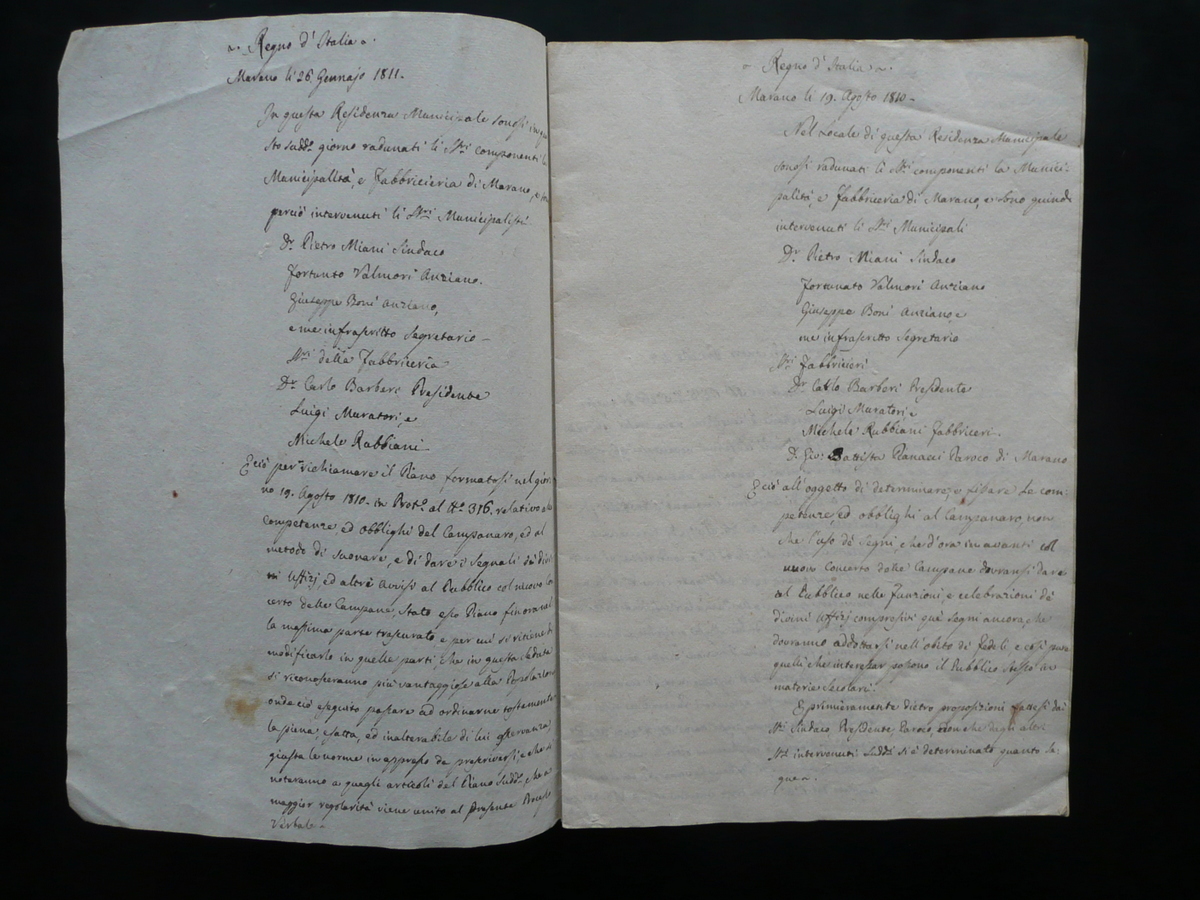 Regno d'Italia
Marano li 26. Gennajo 1811.
In questa Residenza Municipale sonosi in que
sto sudd.o giorno radunati li SS.ri componenti la
Municipallità, e Fabbricieria di Marano, e sono
perciò intervenuti li SS.ri Municipalisti
D.r Pietro Miani Sindaco
Fortunto Valmori Anziano.
Giuseppe Boni Anziano,
e me infrascritto Segretario
SS.ri della Fabbriceria
D.r Carlo Barberi Presidente
Luigi Muratori, e
Michele Rabbiani
E ciò per richiamare il Piano formatosi nel gior
no 19. Agosto 1810. in Prot.o al N.o 316. relativo alle
competenze, ed obblighi del Campanaro, ed al
metodo di suonare, e di dare i Segnali de divi
ni Uffizj, ed altri Avvisi al Pubblico col nuovo Con
certo delle Campane, Stato esso Piano finora nel
la massima parte trascurato e per cui si ritiene di
modificarlo in quelle parti, che in questa Seduta
si riconosceranno più vantaggiose alla Popolazione
onde ciò eseguito passare ad ordinarne tostamente
la piena, esatta, ed inalterabile di lui osservanza,
giusta le norme in appresso da prescriversi, e che si
noteranno a quegli articoli del Piano Sudd.o, che a
maggior regolarità viene unito al presente Processo
Verbale
Regno d'Italia
Marano li 19. Agosto 1810
Nel Locale di questa Residenza Municipale
sonosi radunati li SS.ri componenti la Munici-
palità, e Fabbriceria di Marano, e sono quindi
intervenuti li SS.ri Municipali
D.r Pietro Miani Sindaco
Fortunato Valmori Anziano
Giuseppe Boni Anziano, e
me infrascritto Segretario
SS.ri Fabbricieri
D.r Carlo Barberi Presidente
Luigi Muratori e
Michele Rubbiani Fabbriceri.
D. Gio: Battista Pianacci Paroco di Marano
E ciò all'oggetto di determinare, e fissare le com-
petenze, ed obblighi al Campanaro, non
che l'uso de Segni, che d'ora in avanti col
nuovo Concerto delle Campane dovransi dare
al Pubblico nelle Funzioni, e celebrazioni de
divini Uffizj compresivi que Segni ancora, che
dovranno addottarsi nell'obito de Fedeli, e così pure
quelli che interessar possono il Pubblico stesso in
materie Secolari.
E primieramente dietro proposizioni fattesi dai
SS.ri Sindaco, Presidente, Paroco, non che dagli altri
SS.ri intervenuti Sudd.i si è determinato quanto se
gue.